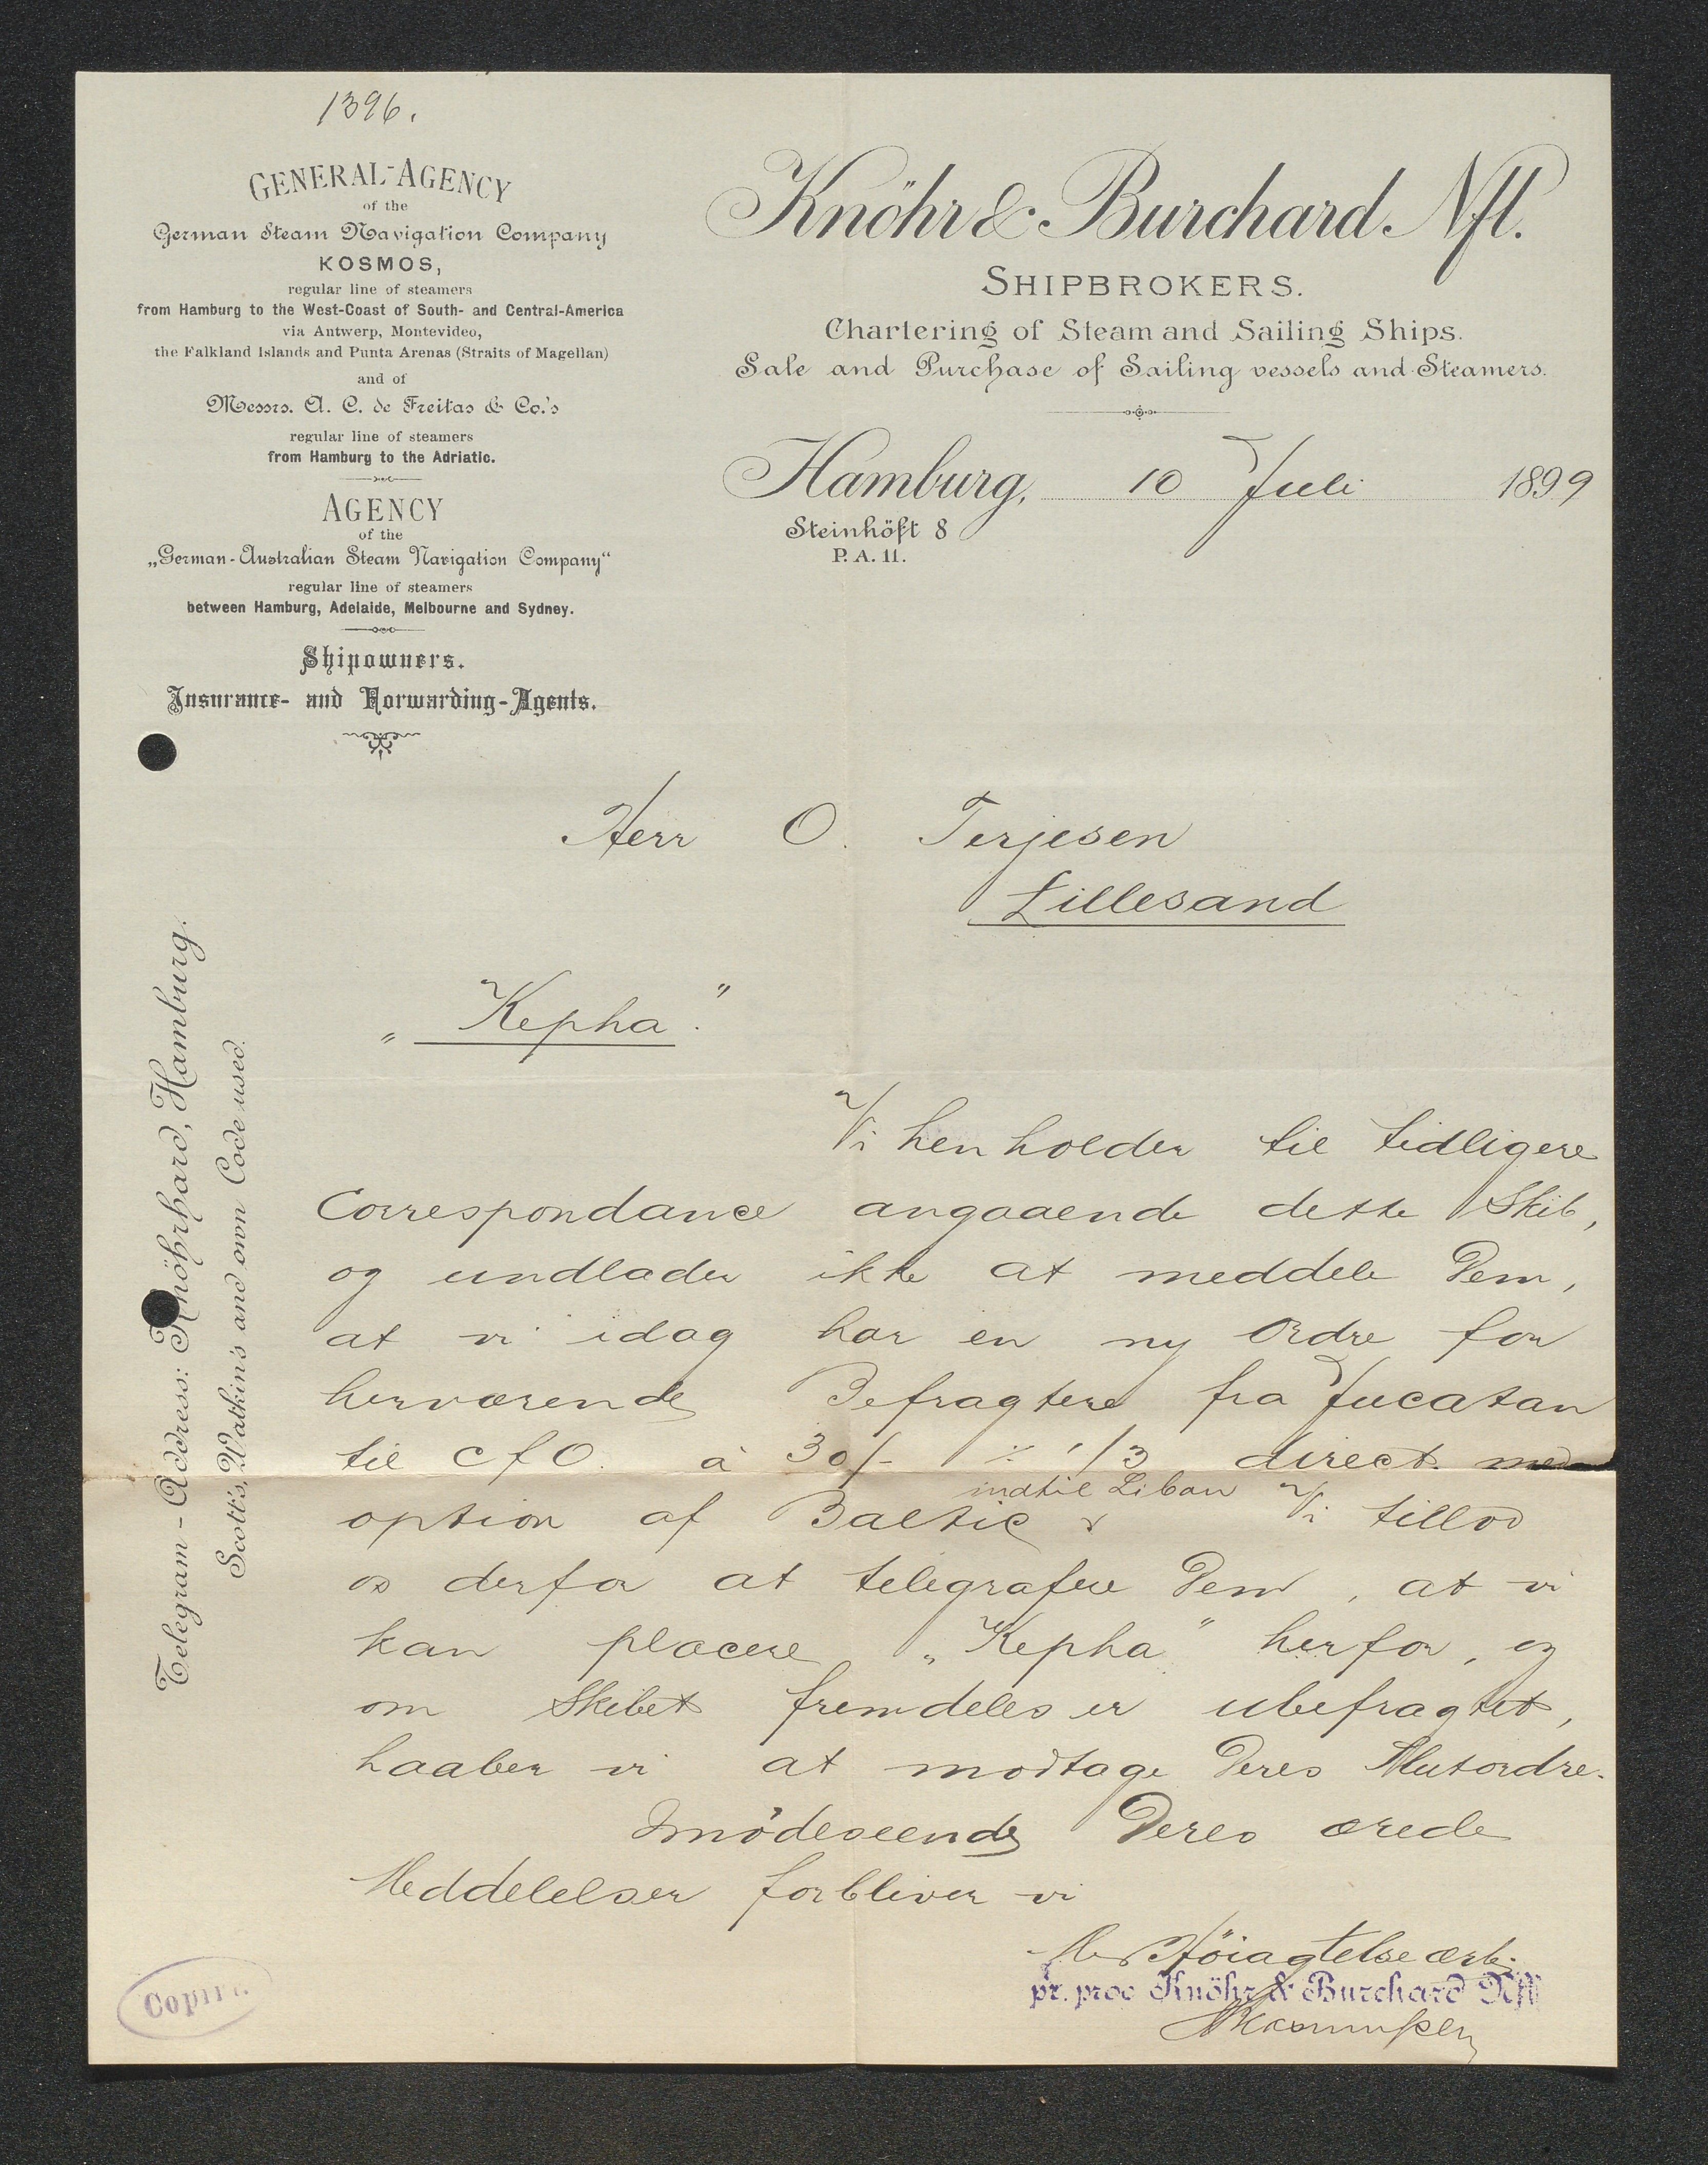 1396.
GENERAL-AGENCY
of the
German Steam Navigation Company
KOSMOS,
regular line of steamers
from Hamburg to the West-Coast of South- and Central-America
via Antwerp, Montevideo,
the Falkland Islands and Punta Arenas (Straits of Magellan)
and of
Messrs. A. C. de Freitas & Co.'s
regular line of steamers
from Hamburg to the Adriatic.
AGENCY
of the
„German-Australian Steam Navigation Company“
regular line of steamers
between Hamburg, Adelaide, Melbourne and Sydney.
Shipowners.
Insurance- and Forwarding-Agents.
Knöhr & Burchard Nfl.
SHIPBROKERS.
Chartering of Steam and Sailing Ships.
Sale and Purchase of Sailing vessels and Steamers.
Hamburg, 10 Juli 1899
Steinhöft 8
P. A. 11.
Telegram-Address: Knöhrhard, Hamburg.
Scott's, Watkin's and own Code used.
Herr O. Terjesen
Lillesand
„Kepha“.
Vi henholder til tidligere
Correspondance angaaende dette Skib,
og undlader ikke at meddele Dem,
at vi idag har en ny Ordre for
herværende Befragtere fra Jucatan
til CfO. à 30/- ./. 1/3 direct. med
option af Baltic
indtil Libau Vi tillod
os derfor at telegrafere Dem, at vi
kan placere „Kepha“ herfor, og
om Skibet fremdeles er ubefragtet,
haaber vi at modtage Deres
Imødeseende Deres ærede
Meddelelser forbliver vi
Med Höiagtelse ærb.
pr. proc Knöhr & Burchard Nfl